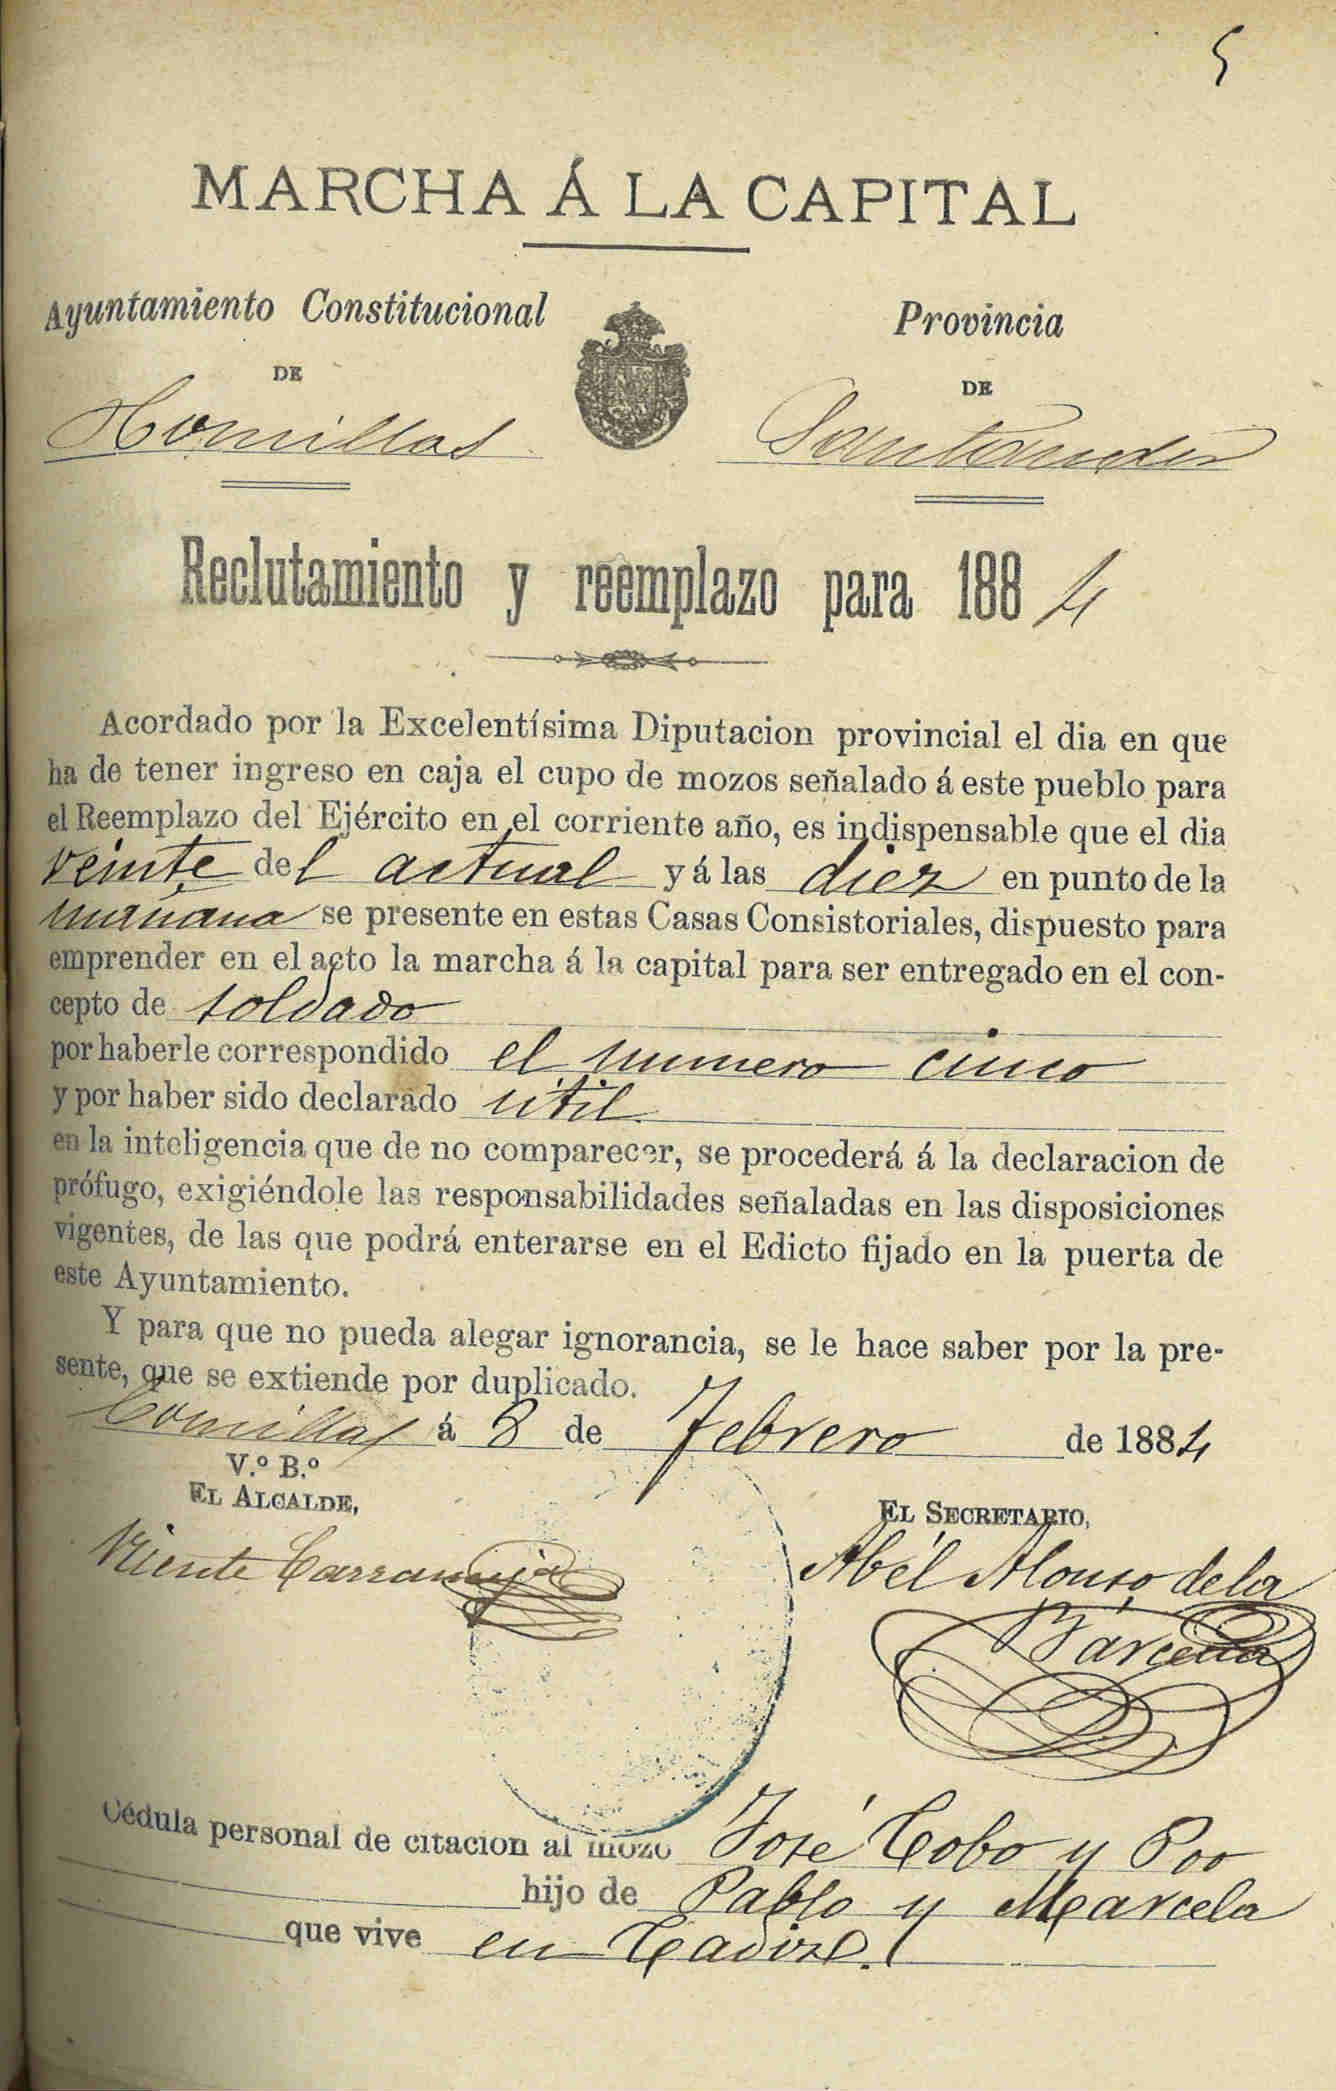 5
MARCHA Á LA CAPITAL
Ayuntamiento Constitucional
DE
Comillas
Provincia
DE
Santander
Reclutamiento y reemplazo para 1884
Acordado por la Excelentísima Diputacion provincial el dia en que
ha de tener ingreso en caja el cupo de mozos señalado á este pueblo para
el Reemplazo del Ejército en el corriente año, es indispensable que el dia
veinte del actual y á las diez en punto de la
mañana se presente en estas Casas Consistoriales, dispuesto para
emprender en el acto la marcha á la capital para ser entregado en el con-
cepto de soldado
por haberle correspondido el numero cinco
y por haber sido declarado útil
en la inteligencia que de no comparecer, se procederá á la declaracion de
prófugo, exigiéndole las responsabilidades señaladas en las disposiciones
vigentes, de las que podrá enterarse en el Edicto fijado en la puerta de
este Ayuntamiento.
Y para que no pueda alegar ignorancia, se le hace saber por la pre-
sente, que se extiende por duplicado.
Comillas á 8 de Febrero de 1884
V.º B.º
EL ALCALDE,
Vicente Carranceja
EL SECRETARIO,
Abél Alonso de la
Bárcena
Cédula personal de citacion al mozo José Cobo y Poo
hijo de Pablo y Marcela
que vive en Cadiz.